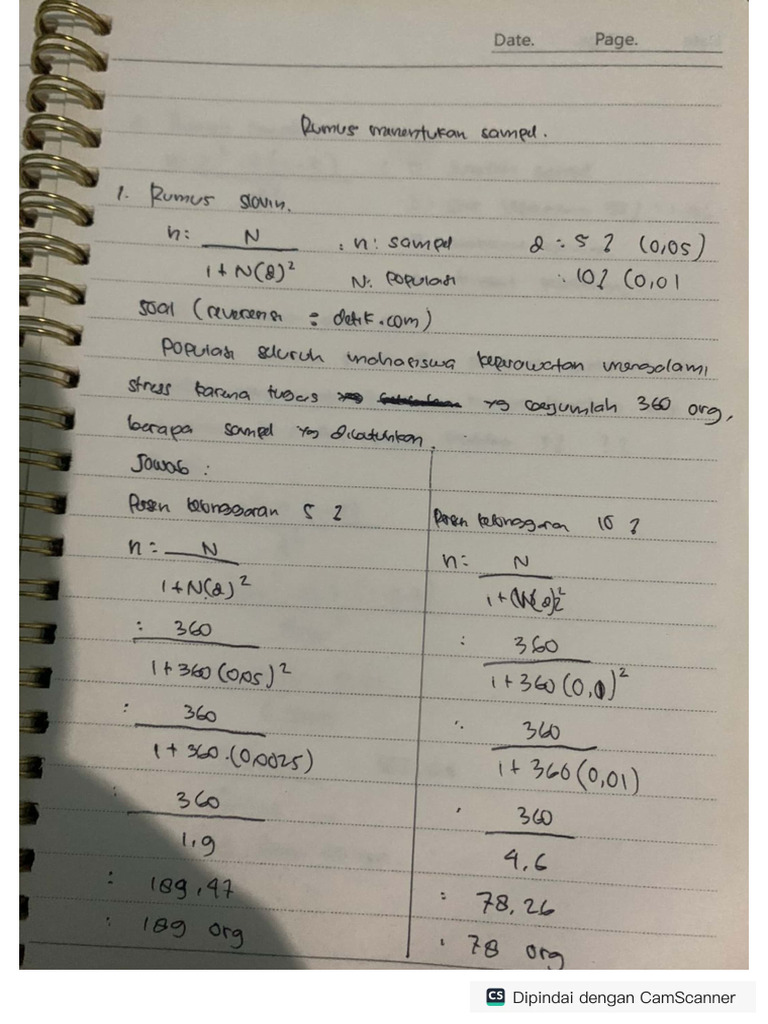 Date. Page.
Rumus menentukan sampel.
1. Rumus slovin.
n: N : n: sampel e : 5 % (0,05)
1 + N(e)² N: Populasi : 10% (0,01
soal (reverensi : detik.com)
Populasi seluruh mahasiswa keperawatan mengalami
stress karena tugas yg berjumlah 360 org,
berapa sampel yg dibutuhkan.
Jawab :
Persen kelonggaran 5 %
n = N
1 + N(e)²
: 360
1 + 360 (0,05)²
: 360
1 + 360.(0,0025)
: 360
1,9
: 189,47
: 189 org
Persen kelonggaran 10 %
n: N
1 + (N(e)²
: 360
1 + 360 (0,1)²
: 360
1 + 360 (0,01)
: 360
4,6
: 78,26
: 78 org
CS Dipindai dengan CamScanner